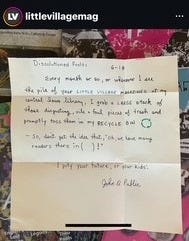 littlevillagemag
Dissolutioned Fools:
6-18
Every month or so, or whenever I see
the pile of your LITTLE VILLAGE magazines at my
central Iowa library, I grab a LARGE STACK of
those disgusting, vile + foul pieces of trash and
promptly toss them in my RECYCLE BIN
- So, don't get the idea that, "Oh, we have many
readers there in ( )!"
I pity your future, or your kids'.
John Q Public